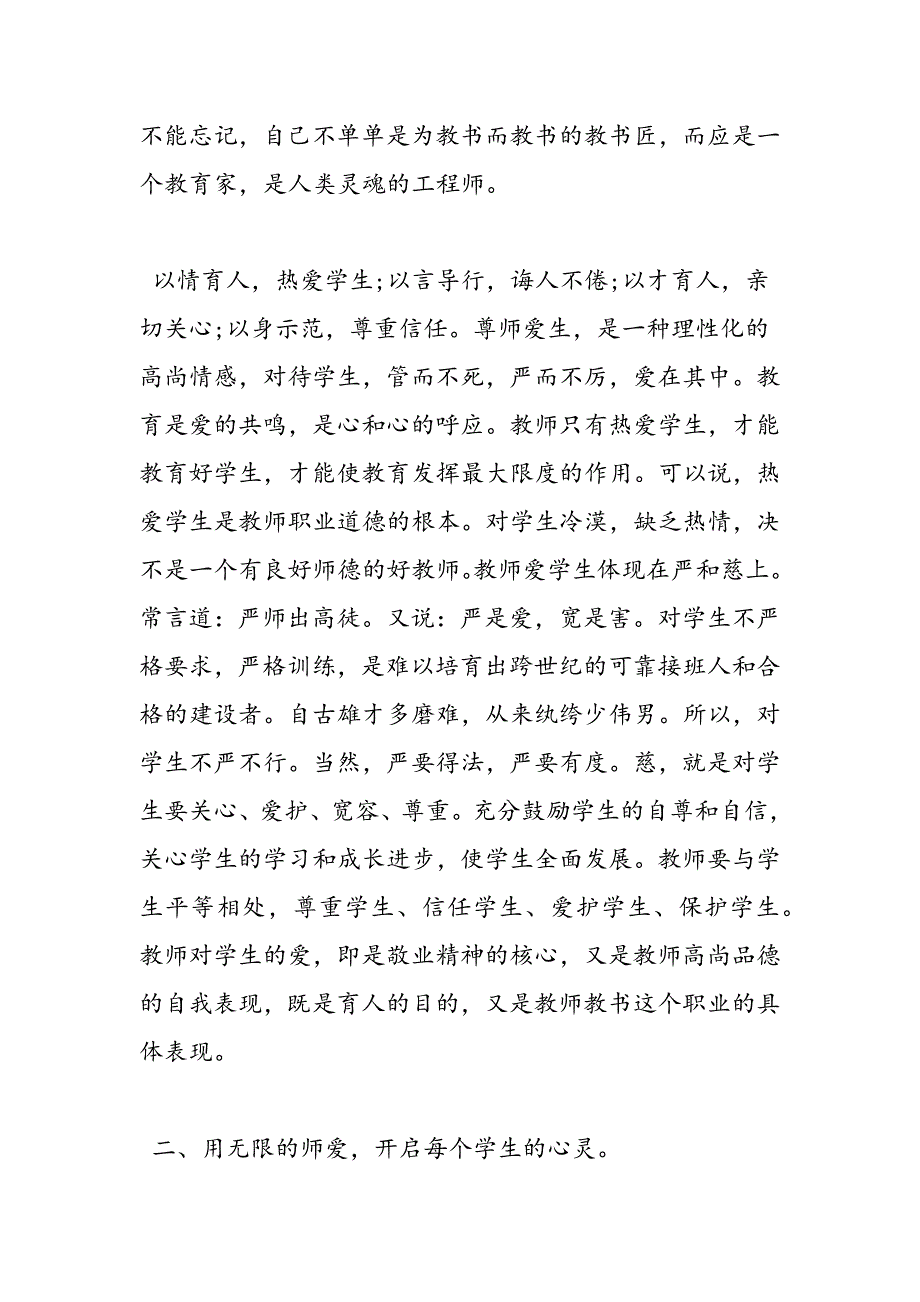 不能忘记，自己不单单是为教书而教书的教书匠，而应是一
个教育家，是人类灵魂的工程师。
以情育人，热爱学生;以言导行，诲人不倦;以才育人，亲
切关心;以身示范，尊重信任。尊师爱生，是一种理性化的
高尚情感，对待学生，管而不死，严而不厉，爱在其中。教
育是爱的共鸣，是心和心的呼应。教师只有热爱学生，才能
教育好学生，才能使教育发挥最大限度的作用。可以说，热
爱学生是教师职业道德的根本。对学生冷漠，缺乏热情，决
不是一个有良好师德的好教师。教师爱学生体现在严和慈上。
常言道：严师出高徒。又说：严是爱，宽是害。对学生不严
格要求，严格训练，是难以培育出跨世纪的可靠接班人和合
格的建设者。自古雄才多磨难，从来纨绔少伟男。所以，对
学生不严不行。当然，严要得法，严要有度。慈，就是对学
生要关心、爱护、宽容、尊重。充分鼓励学生的自尊和自信，
关心学生的学习和成长进步，使学生全面发展。教师要与学
生平等相处，尊重学生、信任学生、爱护学生、保护学生。
教师对学生的爱，即是敬业精神的核心，又是教师高尚品德
的自我表现，既是育人的目的，又是教师教书这个职业的具
体表现。
二、用无限的师爱，开启每个学生的心灵。